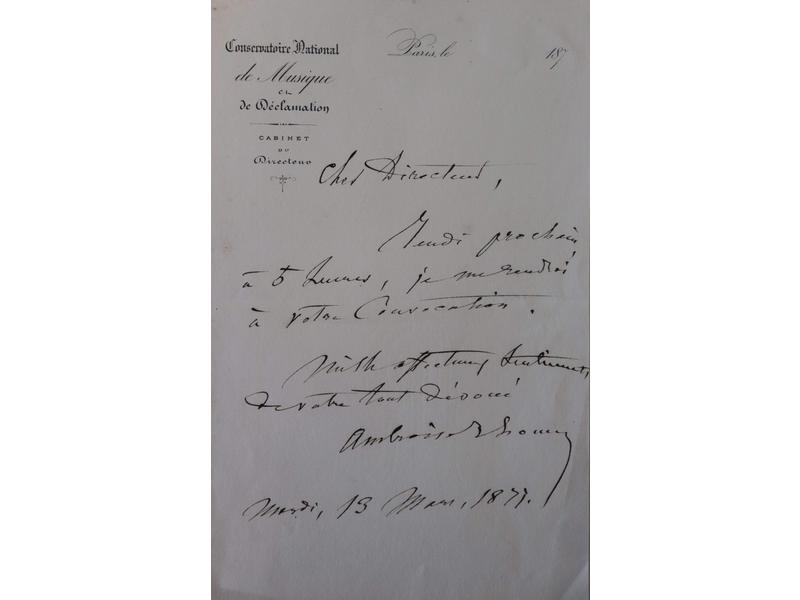 Conservatoire National
de Musique
et
de Déclamation
CABINET
DU
Directeur
Paris, le 187
Cher Directeur,
Jeudi prochain,
à 5 heures, je me rendrai
à votre Convocation.
Mille affectueux sentiments
de votre tout dévoué
Ambroise Thomas
Mardi, 13 Mars, 1877.